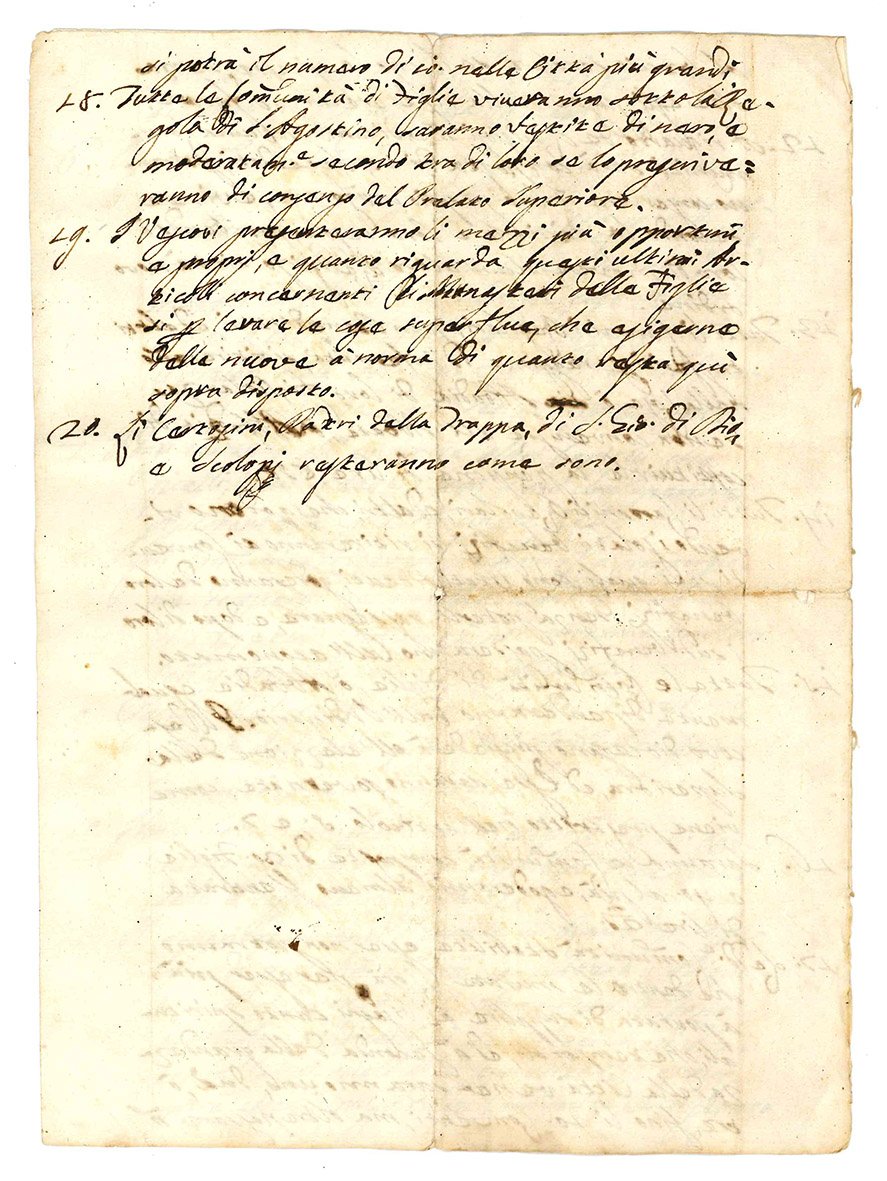 si potrà il numero di 10. nelle Città più grandi
18. Tutte le Com̃unità di Figlie viveranno sotto la Re-
gola di S. Agostino, saranno vestite di nero, e
moderatam.e secondo tra di loro se lo prescrive=
ranno di consenso del Prelato Superiore.
19. I Vescovi presenteranno li mezzi più opportuni
e proprj, e quanto riguarda questi ultimi Ar-
ticoli concernenti li Monasteri delle Figlie
si p levare le cose superflue, che esigerne
delle nuove à norma di quanto resta quì
sopra disposto.
20. Li Certosini, Padri della Trappa, di S. Gio. di Dio,
e Scolopj resteranno come sono.